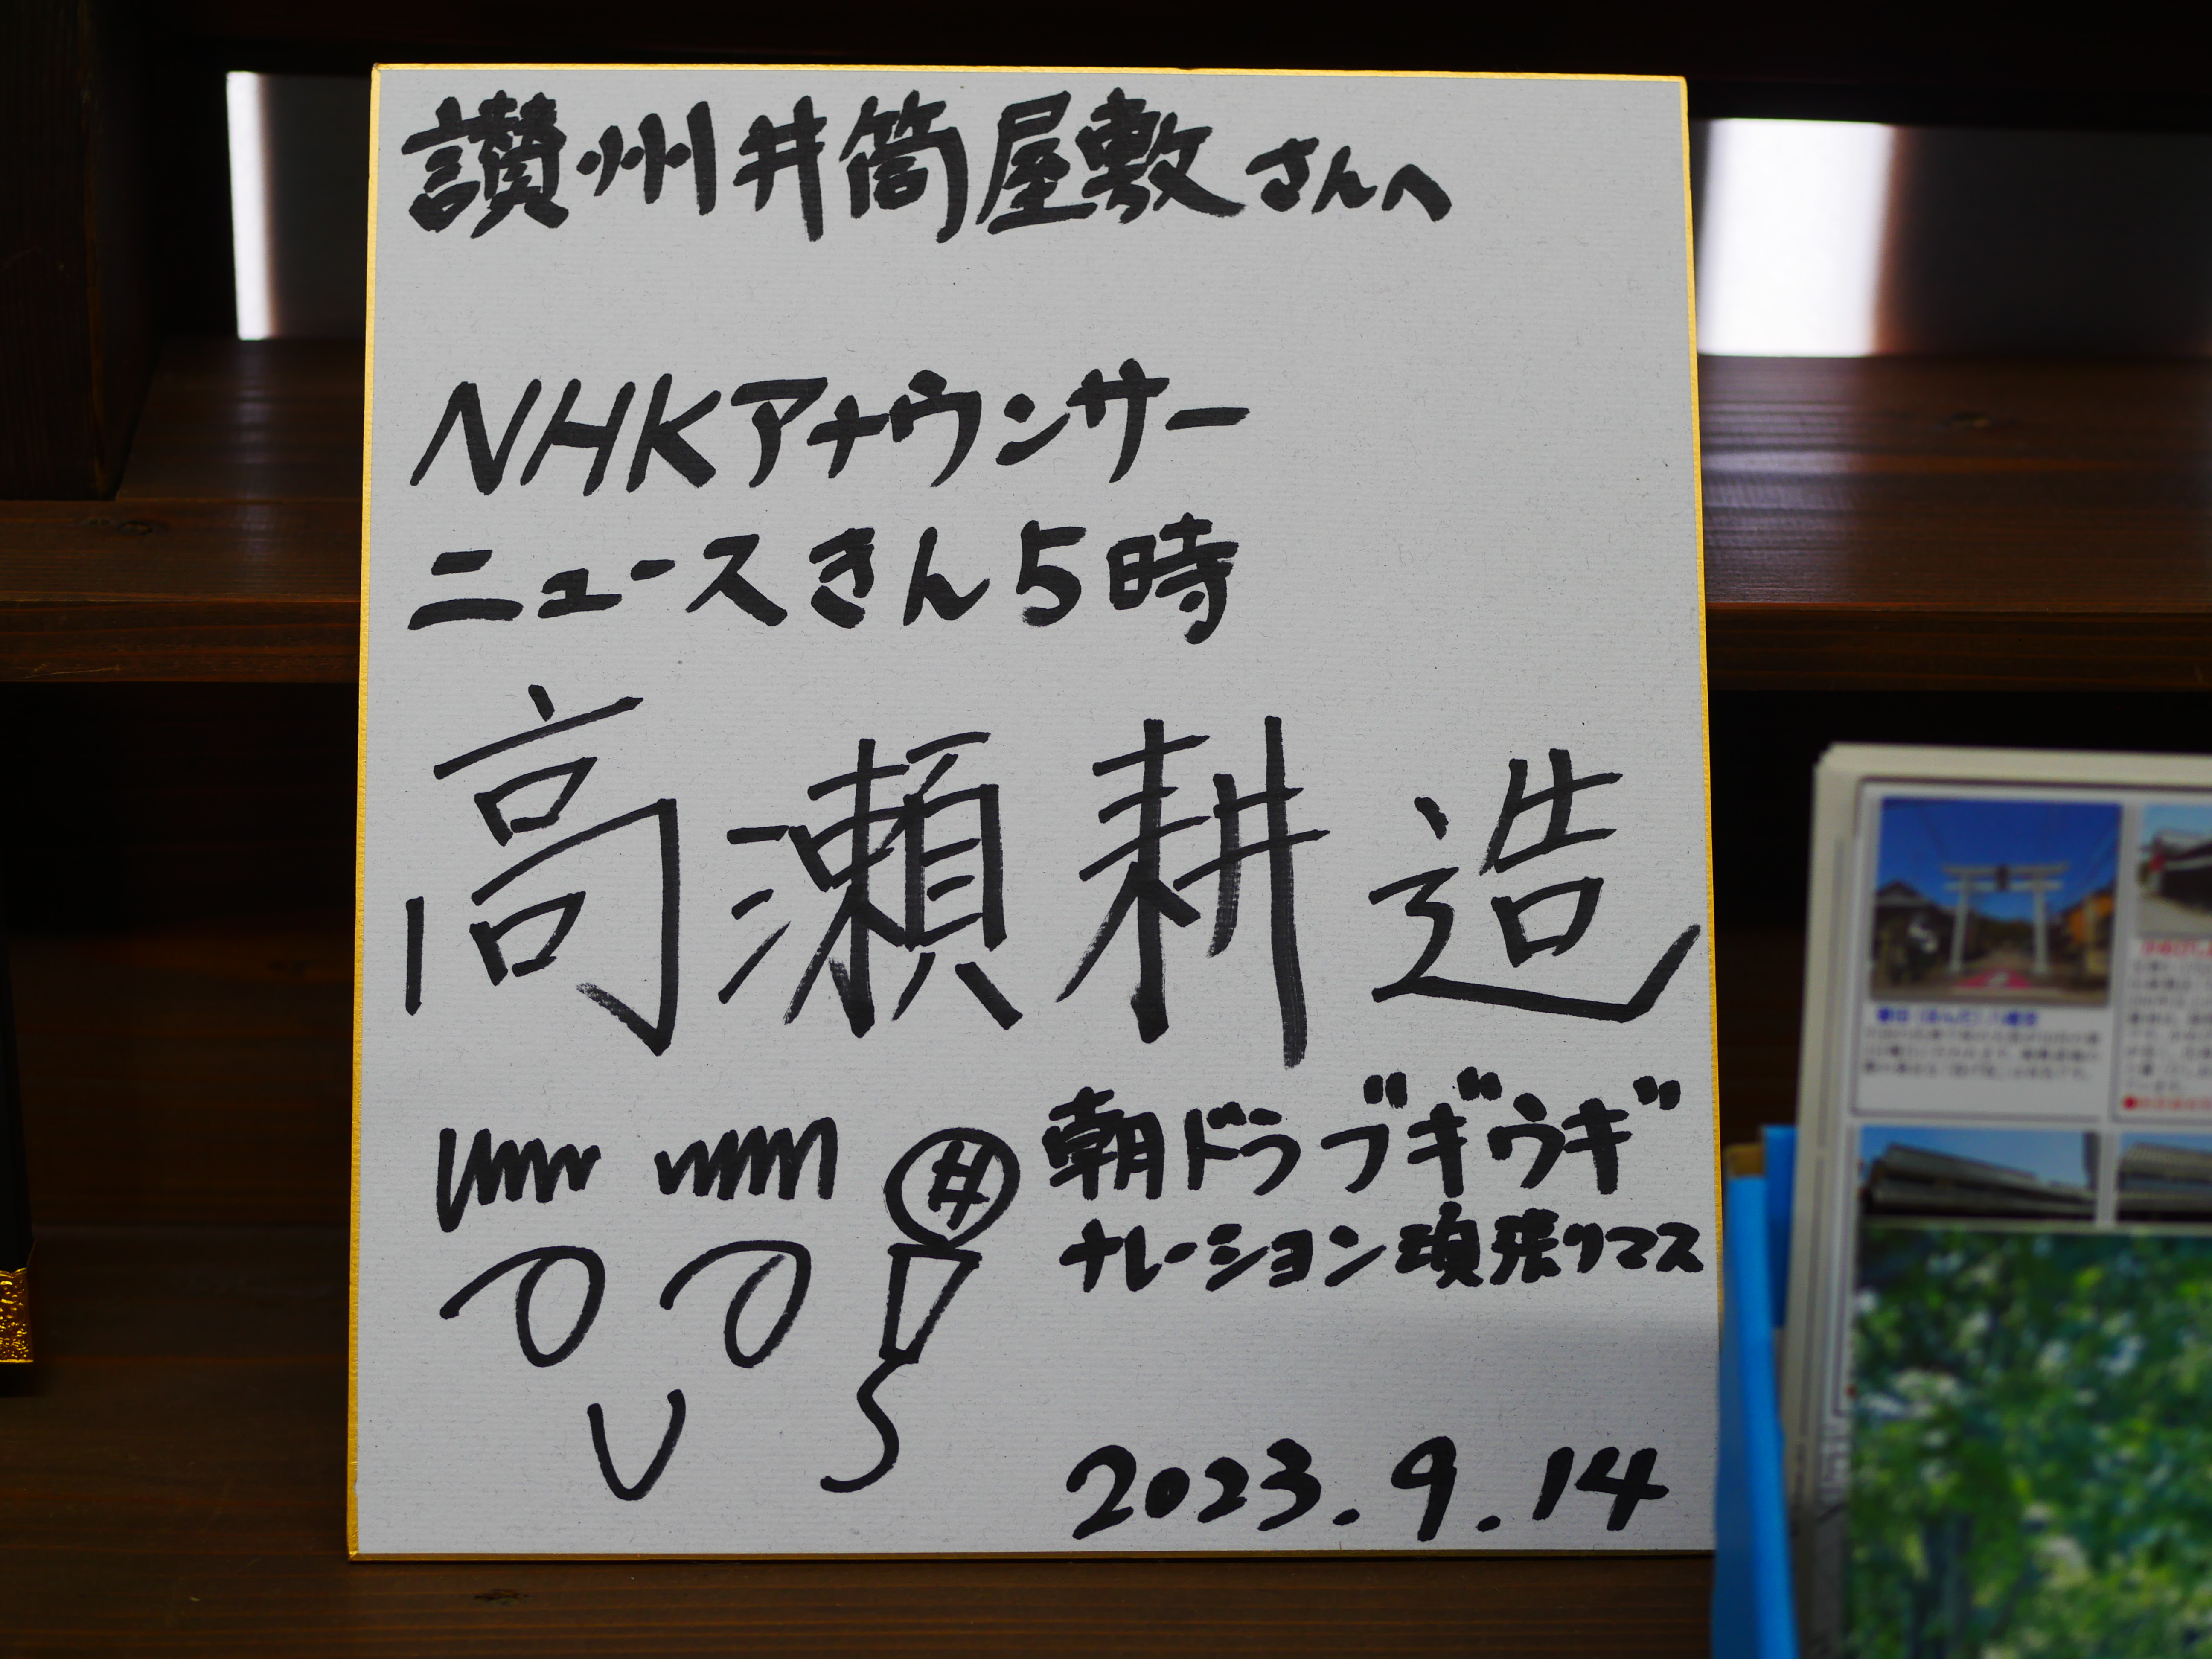 讃州井筒屋敷さんへ
NHKアナウンサー
ニュースきん5時
高瀬耕造
朝ドラ ブギウギ
ナレーション頑張リマス
2023.9.14